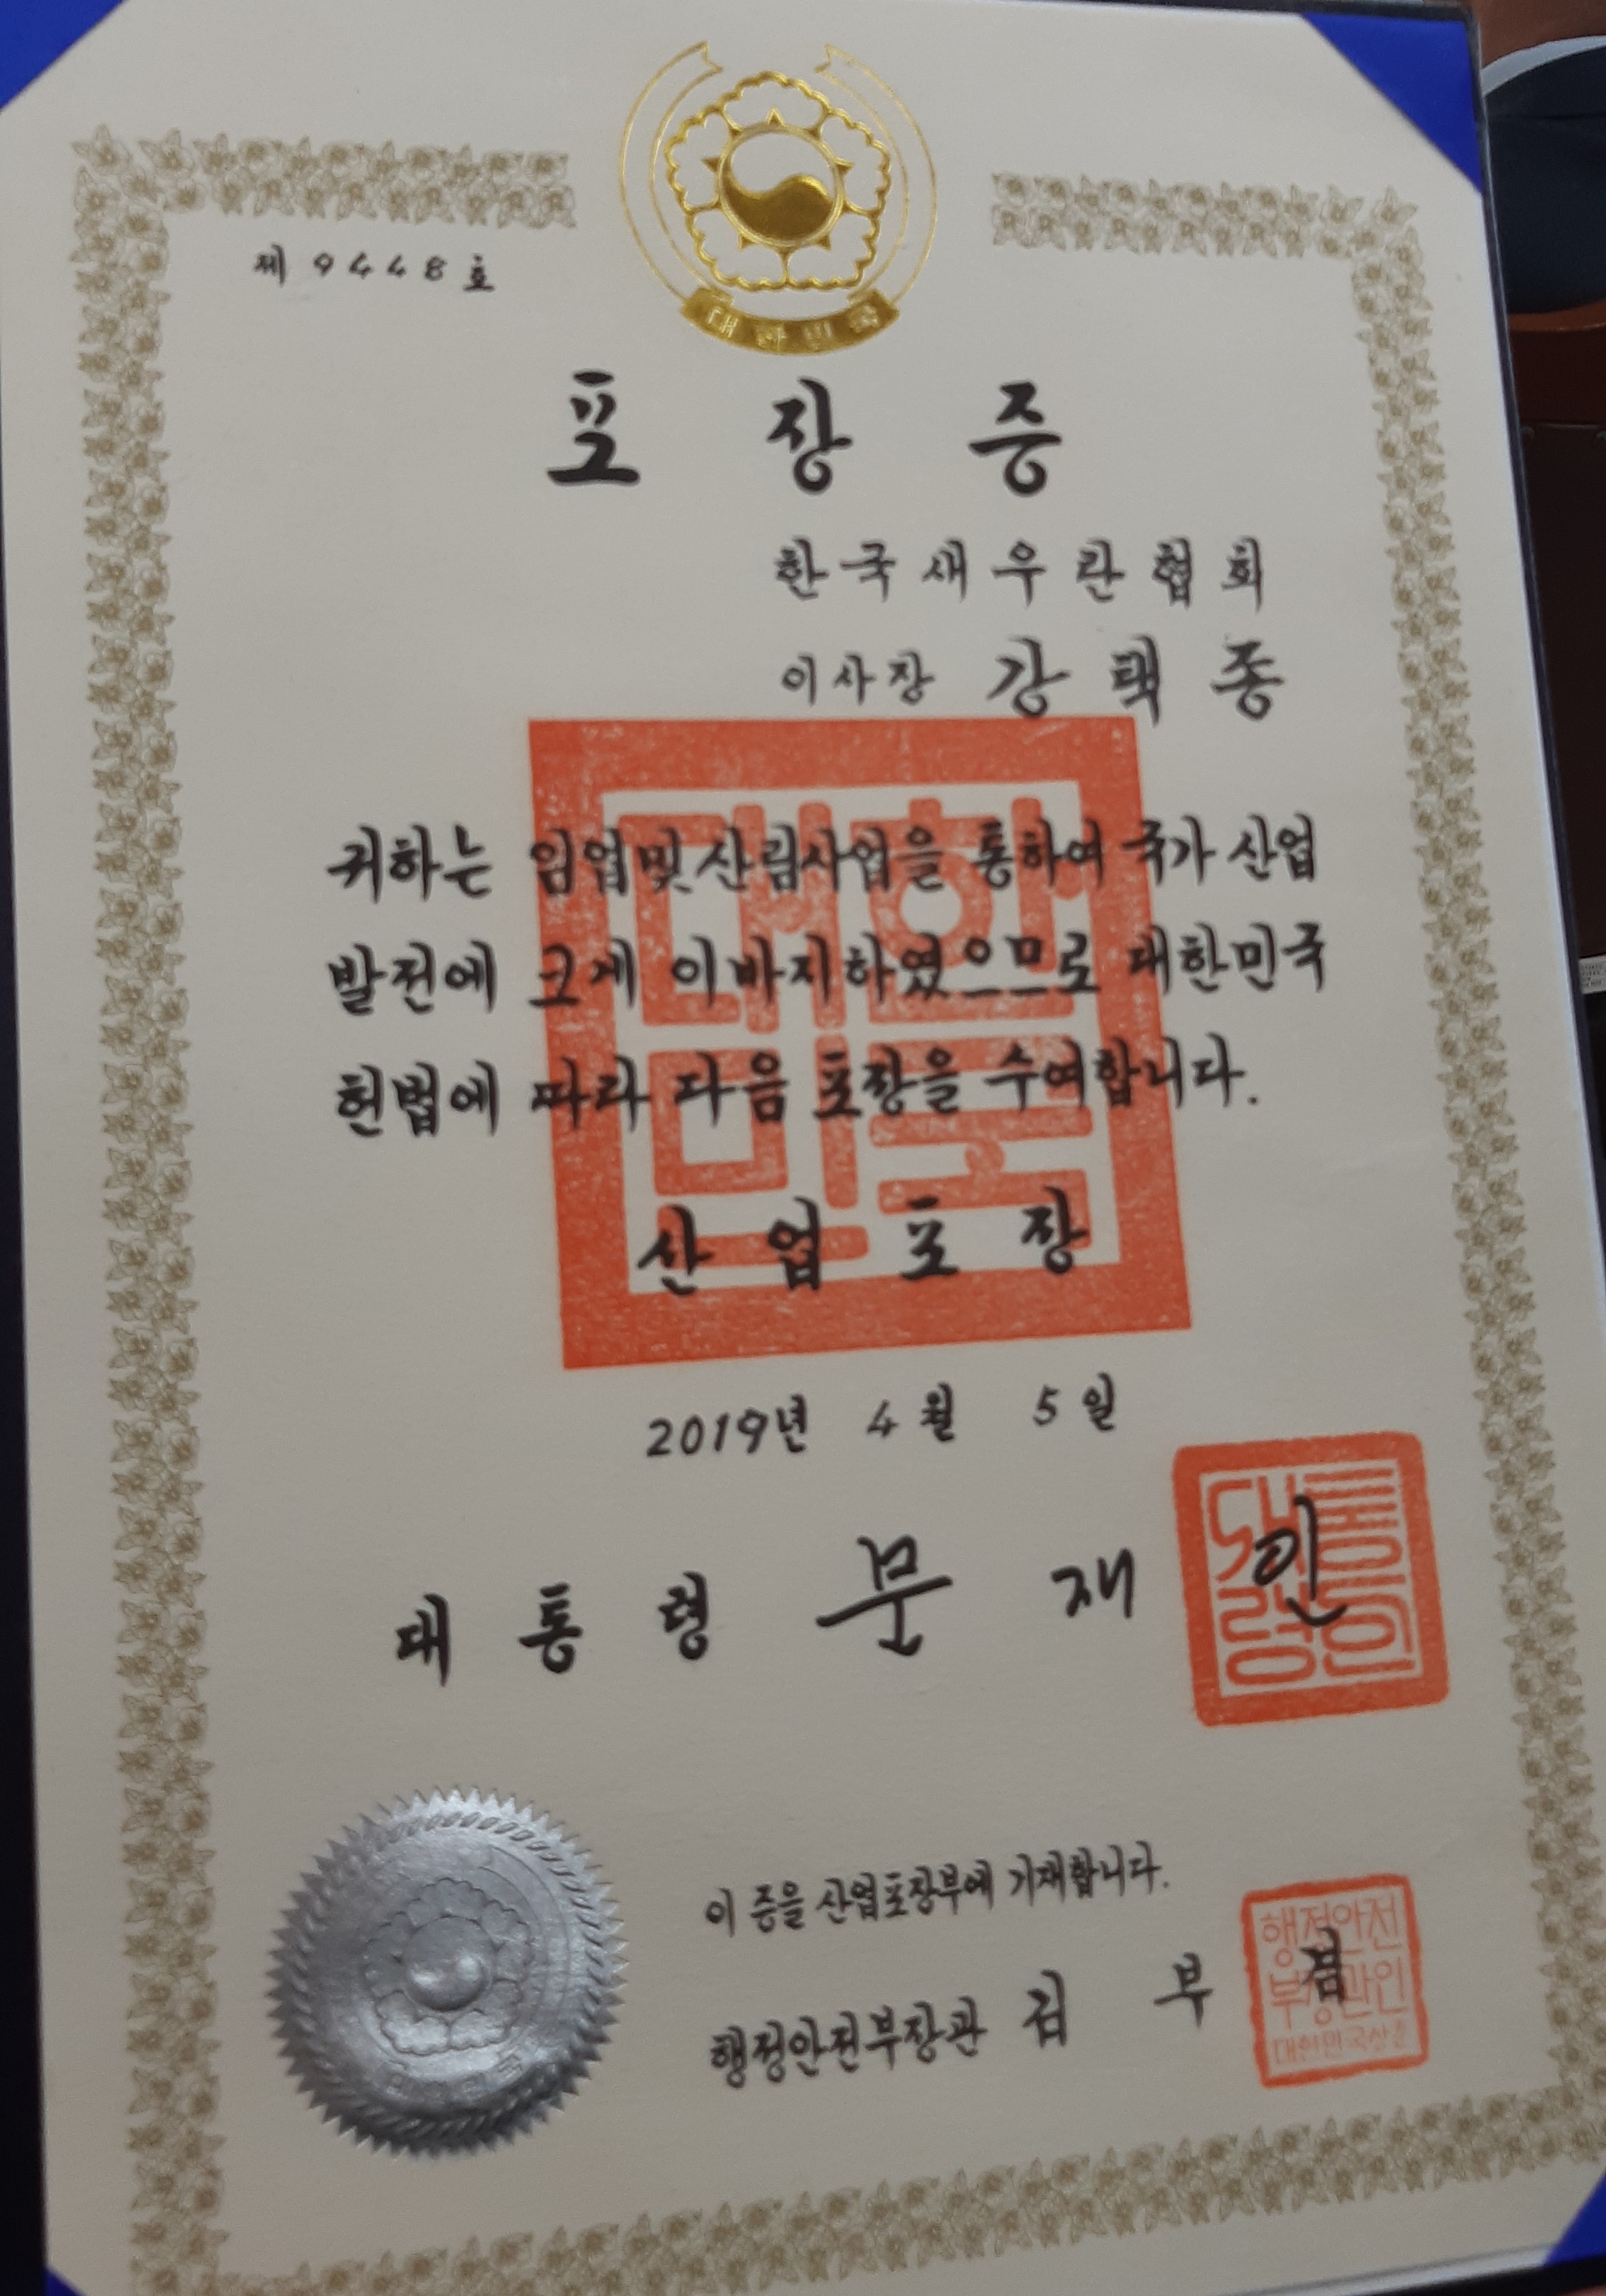 대한민국
제 9448 호
포장증
한국새우란협회
이사장 강택종
귀하는 임업및산림사업을 통하여 국가 산업
발전에 크게 이바지하였으므로 대한민국
헌법에 따라 다음 포장을 수여합니다.
산업포장
2019년 4월 5일
대통령 문재인
이 증을 산업포장부에 기재합니다.
행정안전부장관 김부겸